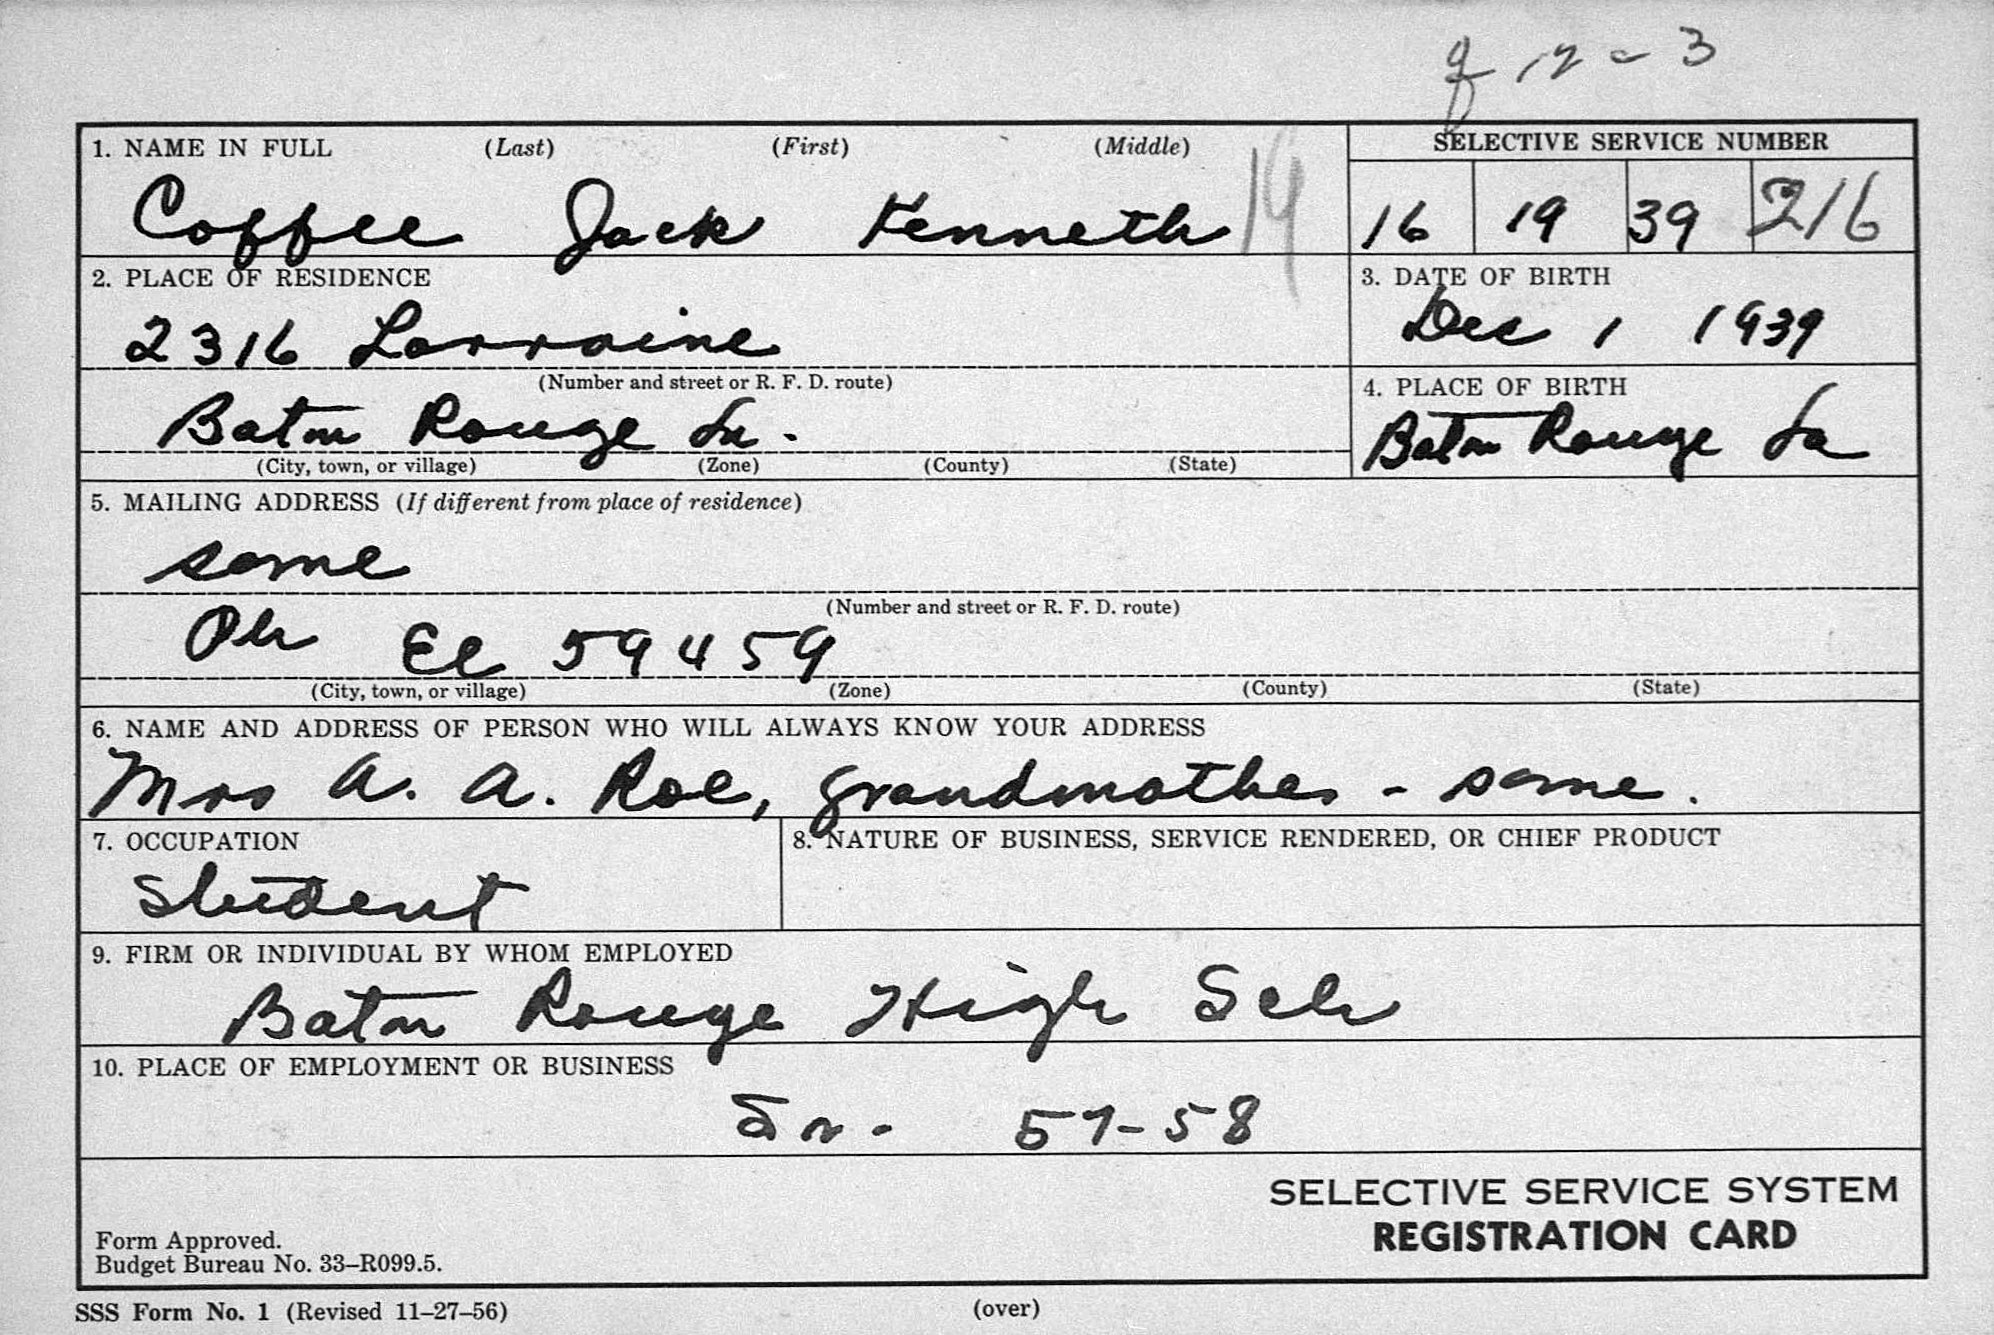 1. NAME IN FULL (Last) (First) (Middle)
SELECTIVE SERVICE NUMBER
Coffee Jack Kenneth 19
16 19 39 216
2. PLACE OF RESIDENCE
3. DATE OF BIRTH
2316 Lorraine
Dec 1 1939
(Number and street or R. F. D. route)
4. PLACE OF BIRTH
Baton Rouge La.
Baton Rouge La
(City, town, or village) (Zone) (County) (State)
5. MAILING ADDRESS (If different from place of residence)
same
(Number and street or R. F. D. route)
Ph El 59459
(City, town, or village) (Zone) (County) (State)
6. NAME AND ADDRESS OF PERSON WHO WILL ALWAYS KNOW YOUR ADDRESS
Mrs A. A. Roe, grandmother - same.
7. OCCUPATION
8. NATURE OF BUSINESS, SERVICE RENDERED, OR CHIEF PRODUCT
Student
9. FIRM OR INDIVIDUAL BY WHOM EMPLOYED
Baton Rouge High Sch
10. PLACE OF EMPLOYMENT OR BUSINESS
Sr. 57-58
SELECTIVE SERVICE SYSTEM
REGISTRATION CARD
Form Approved.
Budget Bureau No. 33–R099.5.
SSS Form No. 1 (Revised 11–27–56) (over)